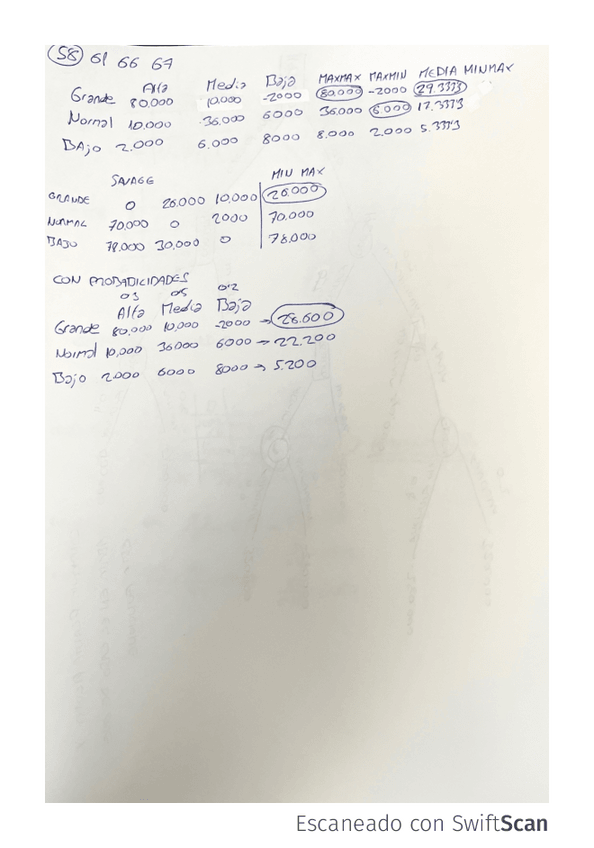 58 61 66 67
Alta Media Baja MAXMAX MAXMIN MEDIA MINMAX
Grande 80.000 10.000 -2000 80.000 -2000 29.3333
Normal 10.000 36.000 6000 36.000 6.000 17.3333
BAJO 2.000 6.000 8000 8.000 2.000 5.3333
SAVAGE MIN MAX
GRANDE 0 26.000 10,000 26.000
NORMAL 70,000 0 2000 70.000
BAJO 78.000 30,000 0 78.000
CON PROBABILIDADES
0'3 0'5 0'2
Alta Media Baja
Grande 80.000 10,000 -2000 → 28.600
Normal 10,000 36000 6000 → 22.200
Bajo 2000 6000 8000 → 5.200
Escaneado con SwiftScan